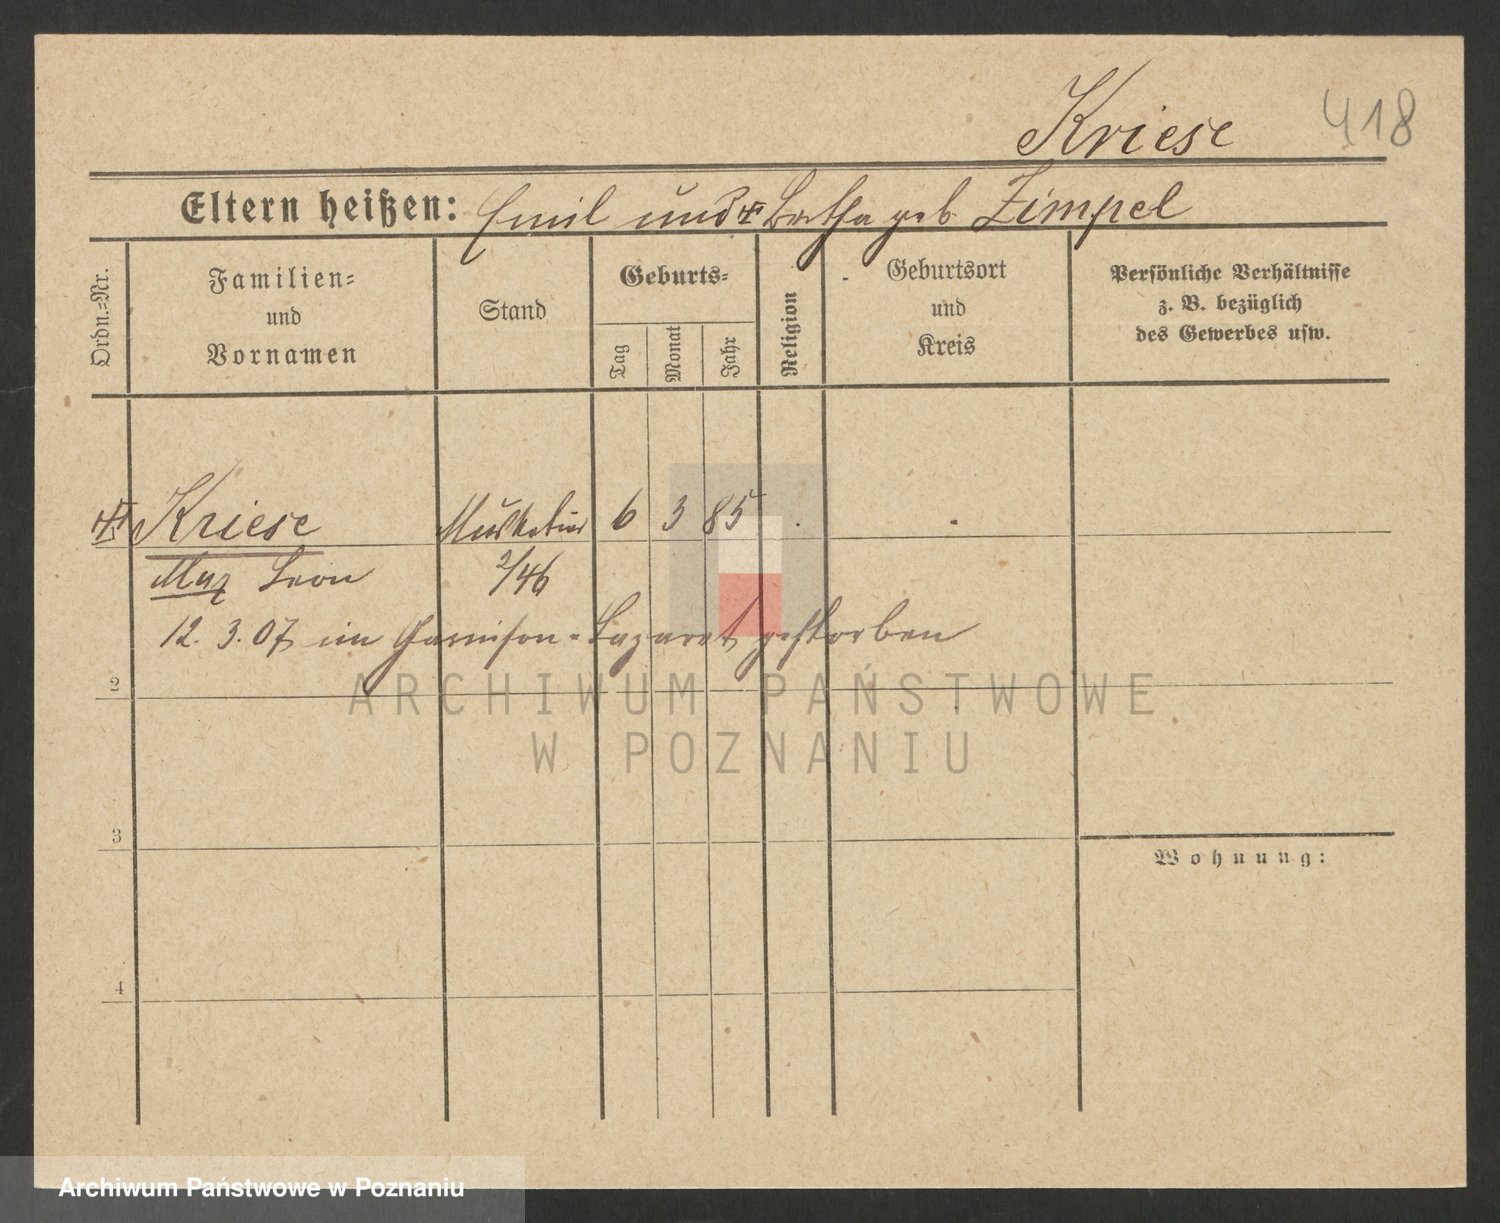 Kriese 418
Eltern heißen: Emil und Bertha geb. Zimpel
Ordn.=Nr.
Familien=
und
Vornamen
Stand
Geburts=
Tag
Monat
Jahr
Religion
Geburtsort
und
Kreis
Persönliche Verhältnisse
z. B. bezüglich
des Gewerbes usw.
Kriese Musketier 6 3 85
Max Leon 2/46
12. 3. 07 im Garnison=Lazaret gestorben
2
3
Wohnung:
4
ARCHIWUM PAŃSTWOWE
W POZNANIU
Archiwum Państwowe w Poznaniu